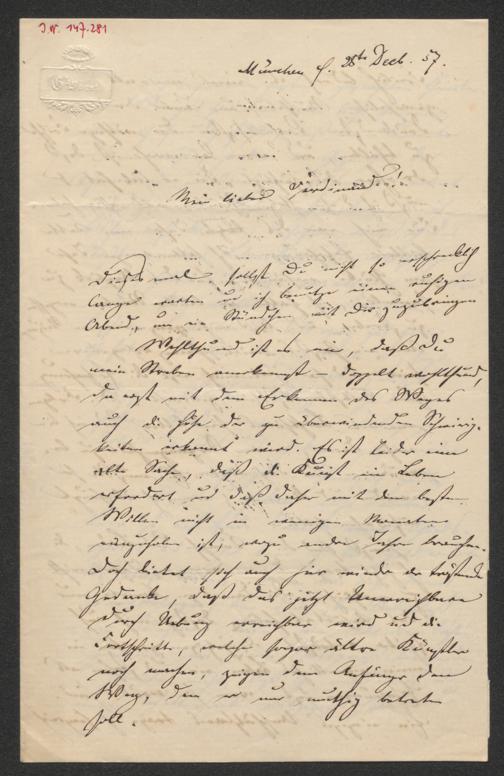 J.N. 147.281
München d. 28te Decb. 57.
Mein lieber Ferdinand!
Diesmal sollst Du nicht so erschrecklich
lange warten und ich benutze einen ruhigen
Abend, um ein Stündchen mit Dir zuzubringen
Wohlthuend ist es mir, daß Du
mein Streben anerkennst – doppelt wohlthuend,
da erst mit dem Erkennen des Weges
auch die Höhe der zu überwindenden Schwierig-
keiten erkannt wird. Es ist leider eine
alte Sache, daß die Kunst ein Leben
erfordert und daß daher mit dem besten
Willen nicht in wenigen Monaten
einzuholen ist, wozu andre Jahre brauchen.
Doch bietet sich auch hier wieder der tröstende
Gedanke, daß das jetzt Unerreichbare
durch Uebung erreichbar wird und die
Fortschritte, welche sogar ältre Künstler
noch machen, zeigen dem Anfänger den
Weg, den er nur muthig betreten
soll.